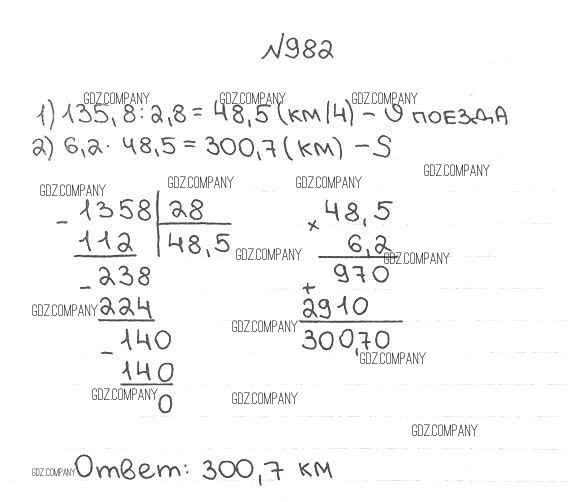 N982
GDZ.COMPANY GDZ.COMPANY GDZ.COMPANY
1) 135,8:2,8 = 48,5 (км/ч) – υ поезда
2) 6,2 · 48,5 = 300,7 (км) – S
GDZ.COMPANY
GDZ.COMPANY GDZ.COMPANY GDZ.COMPANY
- 1358 | 28 × 48,5
112 | 48,5 6,2
GDZ.COMPANY GDZ.COMPANY
- 238 + 970
GDZ.COMPANY 224 2910
GDZ.COMPANY
- 140 300,70
GDZ.COMPANY
140
GDZ.COMPANY GDZ.COMPANY
0
GDZ.COMPANY
GDZ.COMPANY Ответ: 300,7 км